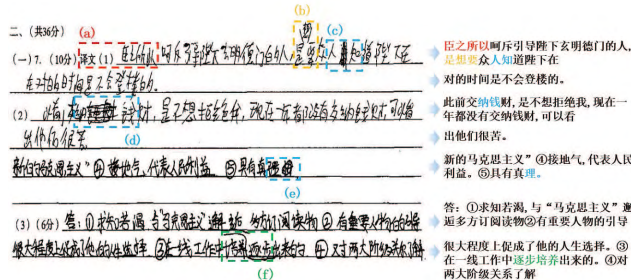 二、(共36分)
(a)
(b)
(c)
(一)7.(10分)译文(1)臣之所以呵斥引导陛下玄明德门的人,是想要众人知道陛下在
对的时间是不会登楼的。
(2)此前交纳钱财,是不想拒绝我,现在一年都没有交纳钱财,可以看
出他们很苦。
(d)
新的马克思主义”④接地气,代表人民利益 ⑤具有真理
(e)
(3)(6分)答:①求知若渴,与“马克思主义”邂逅 多方订阅读物②有重要人物的引导
很大程度上促成了他的人生选择 ③在一线工作中逐步培养出来的 ④对两大阶级关系了解
(f)
臣之所以呵斥引导陛下玄明德门的人,
是想要众人知道陛下在
对的时间是不会登楼的。
此前交纳钱财,是不想拒绝我,现在一
年都没有交纳钱财,可以看
出他们很苦。
新的马克思主义”④接地气,代表人民
利益。⑤具有真理。
答:①求知若渴,与“马克思主义”邂
逅多方订阅读物②有重要人物的引导
很大程度上促成了他的人生选择。③
在一线工作中逐步培养出来的。④对
两大阶级关系了解